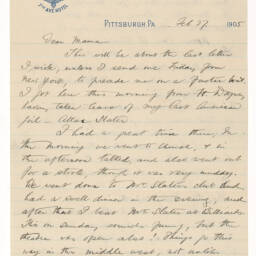 7TH AVE HOTEL
PITTSBURGH PA Feb 27 1905
Dear Mama
This will be about the last letter
I write, unless I send one Friday, from
New York, to precede me on a faster boat.
I got here this morning from Ft Wayne,
having taken leave of my last American
girl - Allee Slater
I had a great time there. In
the morning we went to church, & in
the afternoon talked and also went out
for a stroll, though it was very muddy.
We went down to Mr Slater's club and
had a swell dinner in the evening, and
after that I beat Mr Slater at Billiards.
This on Sunday, seemed funny, but the
theatre was open also! Things go this
way in this middle west, not